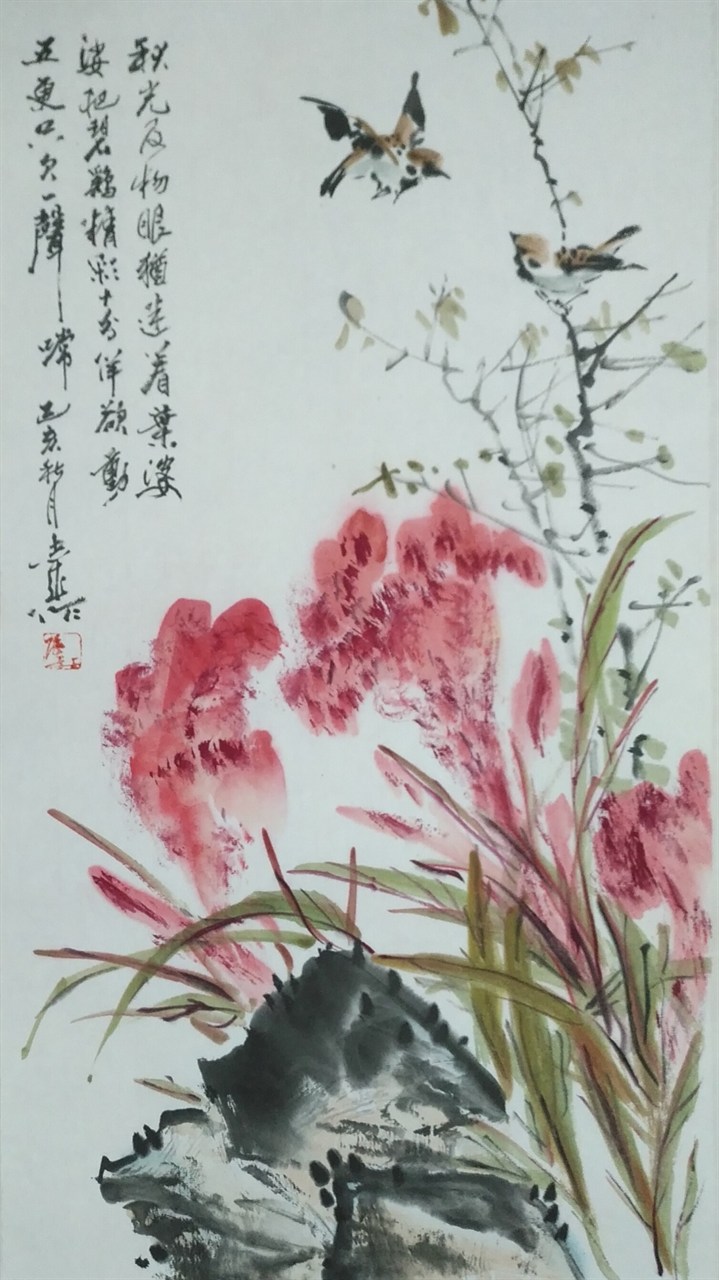 秋光及物眼猶迷着葉婆
娑碧鷄精彩十分佯欲動
五更只欠一聲啼 己亥秋月